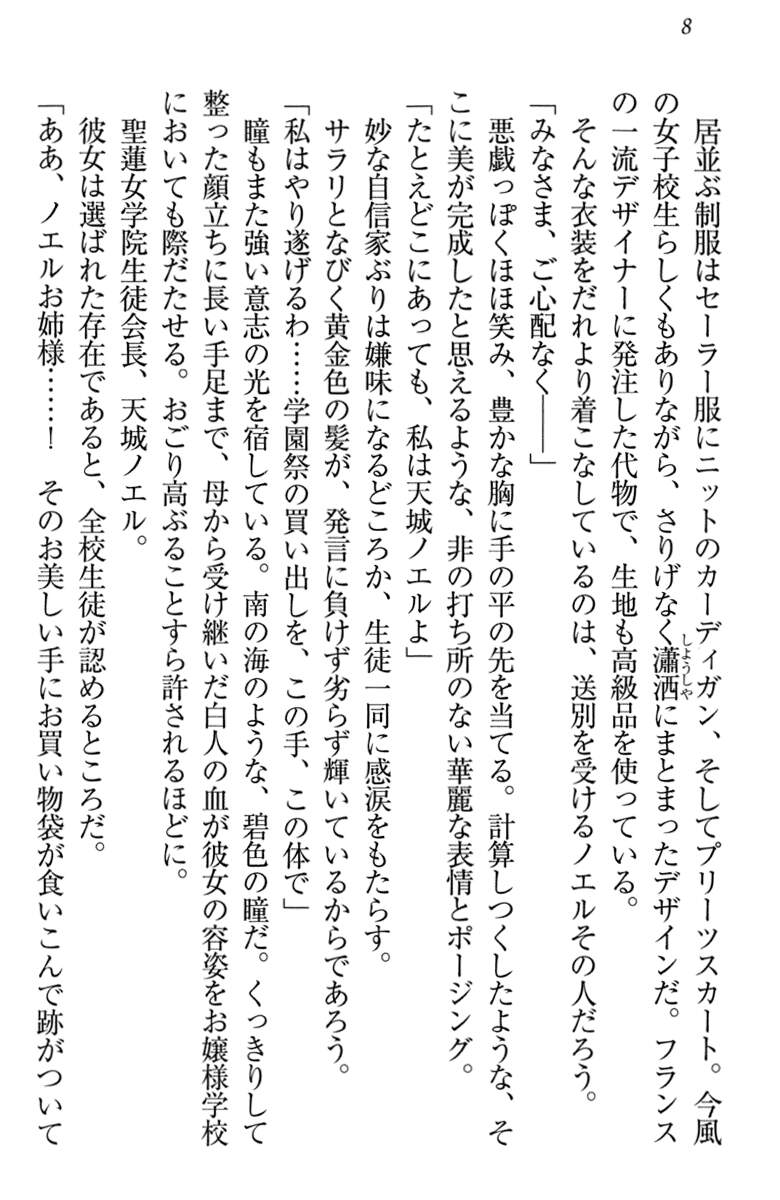 8
居並ぶ制服はセーラー服にニットのカーディガン、そしてプリーツスカート。今風
の女子校生らしくもありながら、さりげなく瀟洒にまとまったデザインだ。フランス
しようしや
の一流デザイナーに発注した代物で、生地も高級品を使っている。
そんな衣装をだれより着こなしているのは、送別を受けるノエルその人だろう。
「みなさま、ご心配なく――」
悪戯っぽくほほ笑み、豊かな胸に手の平の先を当てる。計算しつくしたような、そ
こに美が完成したと思えるような、非の打ち所のない華麗な表情とポージング。
「たとえどこにあっても、私は天城ノエルよ」
妙な自信家ぶりは嫌味になるどころか、生徒一同に感涙をもたらす。
サラリとなびく黄金色の髪が、発言に負けず劣らず輝いているからであろう。
「私はやり遂げるわ……学園祭の買い出しを、この手、この体で」
瞳もまた強い意志の光を宿している。南の海のような、碧色の瞳だ。くっきりして
整った顔立ちに長い手足まで、母から受け継いだ白人の血が彼女の容姿をお嬢様学校
においても際だたせる。おごり高ぶることすら許されるほどに。
聖蓮女学院生徒会長、天城ノエル。
彼女は選ばれた存在であると、全校生徒が認めるところだ。
「ああ、ノエルお姉様……！　そのお美しい手にお買い物袋が食いこんで跡がついて